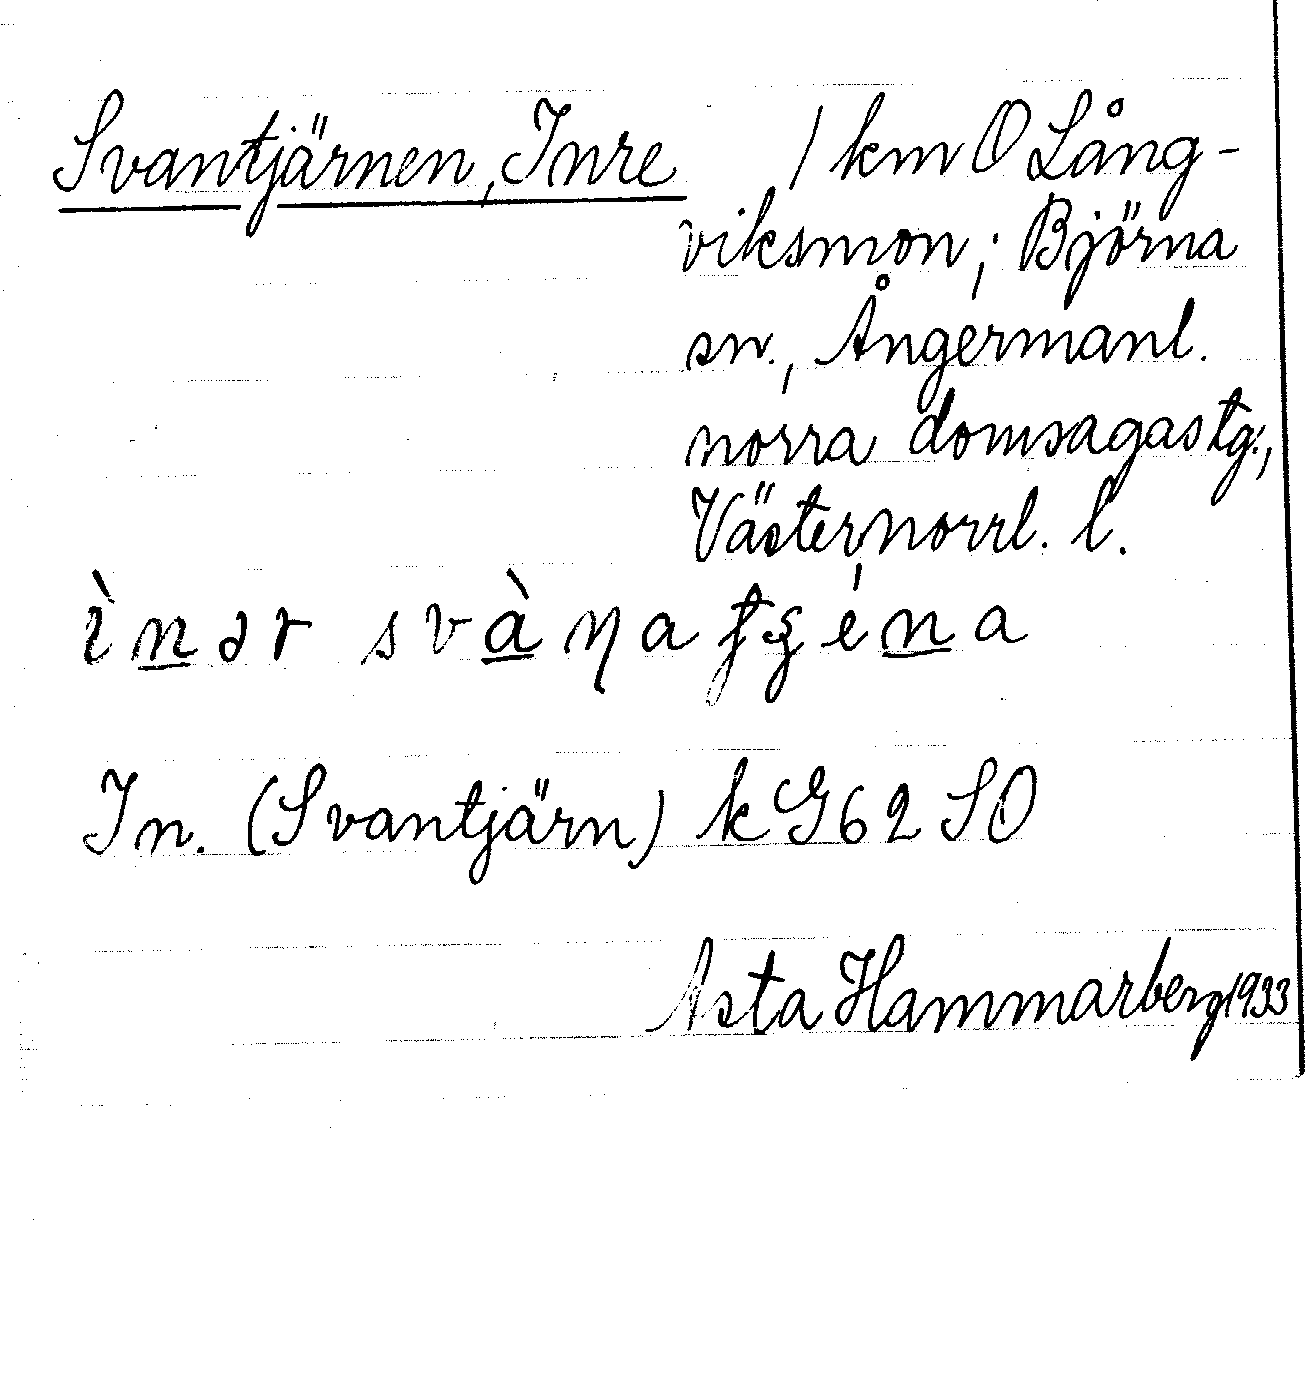 Svantjärnen, Inre 1 km O Lång-
viksmon; Björna
sn., Ångermanl.
norra domsagas tg.,
Västernorrl. l.
ìnər svàŋa
In. (Svantjärn) k G62 SO
Asta Hammarberg 1933